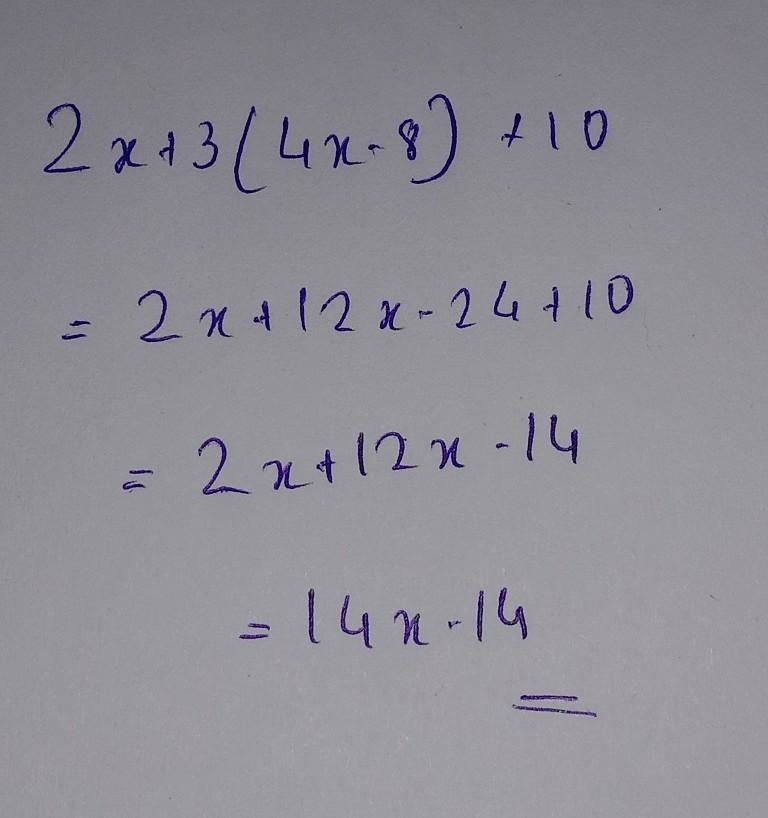 2x+3(4x-8) +10
= 2x+12x-24+10
= 2x+12x-14
= 14x-14